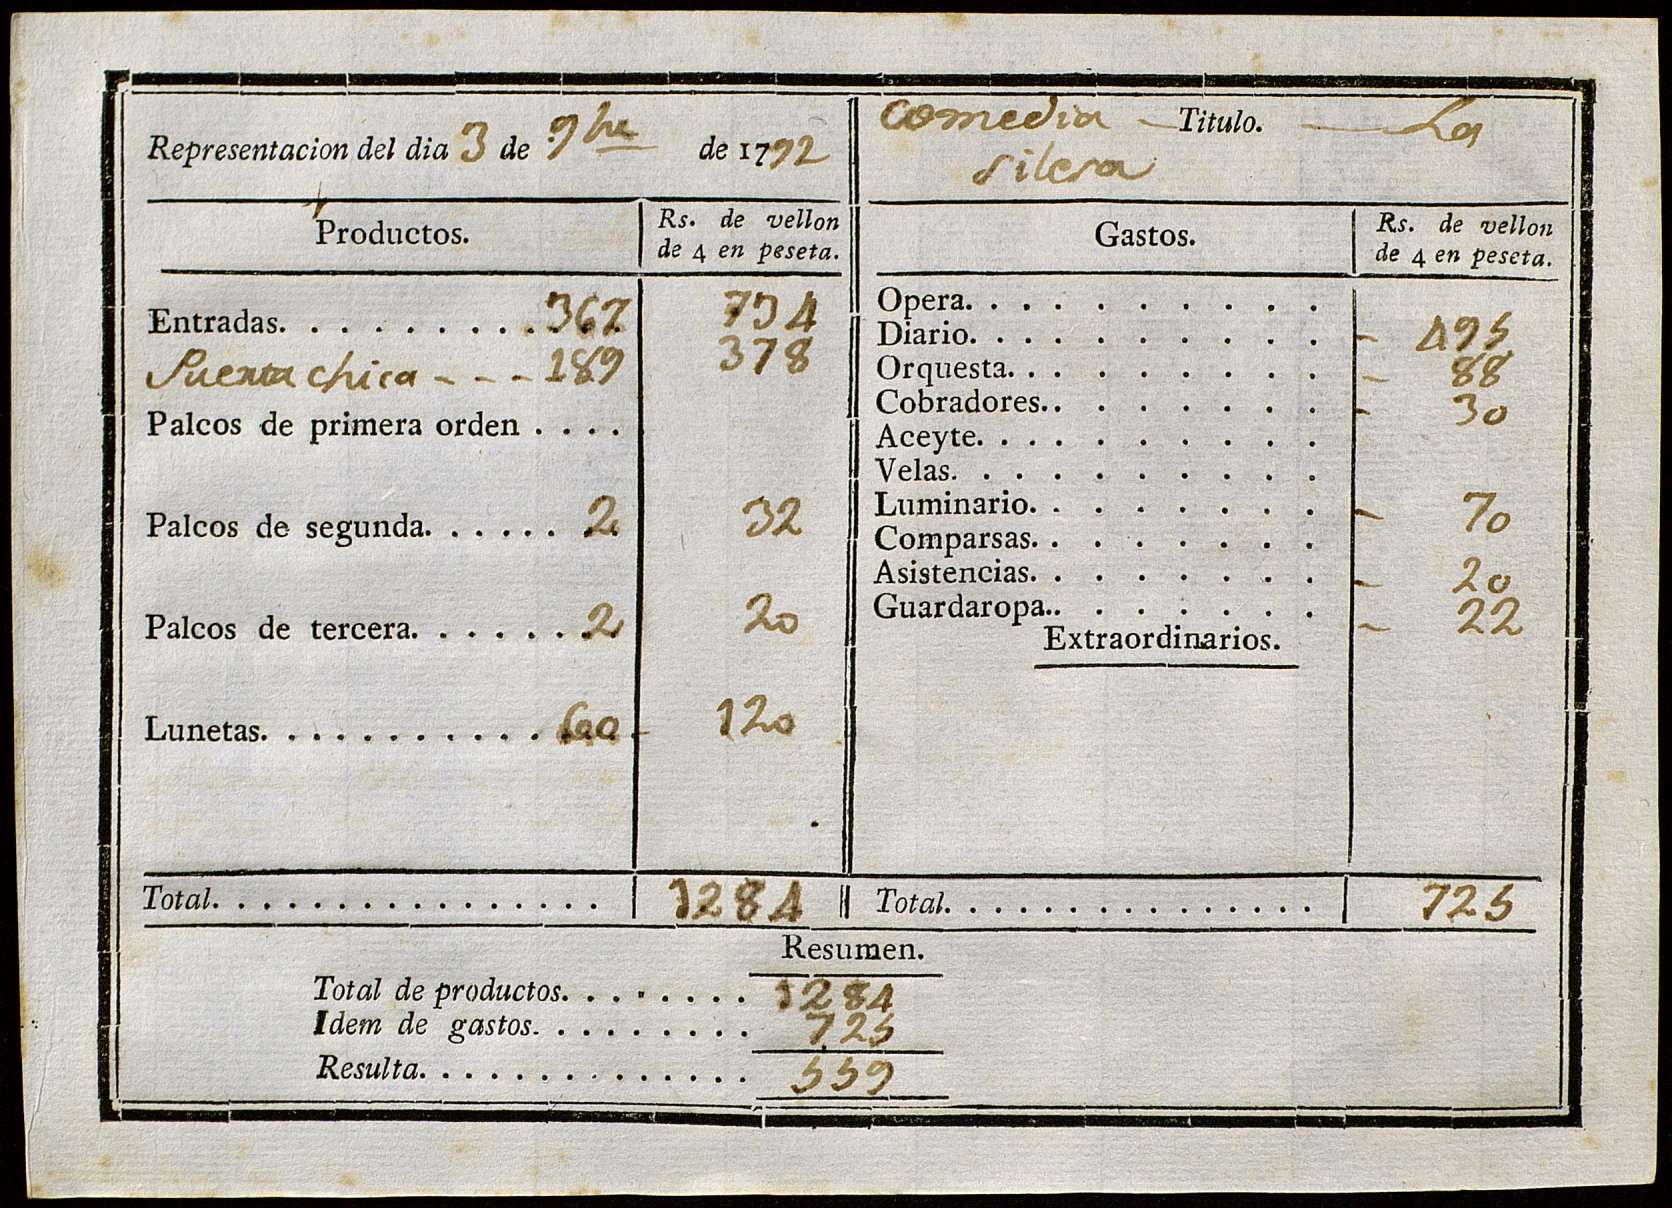 Representacion del dia 3 de 9bre de 1792
comedia - Titulo. - La
silesa
Productos.
Rs. de vellon
de 4 en peseta.
Entradas. . . . . . . . . . . 367 734
Puerta chica - - - 189 378
Palcos de primera orden . . . .
Palcos de segunda. . . . . . 2 32
Palcos de tercera. . . . . . . 2 20
Lunetas. . . . . . . . . . . . 60 - 120
Total. . . . . . . . . . . . . . . . 1284
Gastos.
Rs. de vellon
de 4 en peseta.
Opera. . . . . . . . . . .
Diario. . . . . . . . . . . - 495
Orquesta. . . . . . . . . . - 88
Cobradores.. . . . . . . . - 30
Aceyte. . . . . . . . . . .
Velas. . . . . . . . . . .
Luminario. . . . . . . . . - 70
Comparsas. . . . . . . . .
Asistencias. . . . . . . . - 20
Guardaropa.. . . . . . . . - 22
Extraordinarios.
Total. . . . . . . . . . . . . . . 725
Resumen.
Total de productos. . . . . . . . 1284
Idem de gastos. . . . . . . . . 725
Resulta. . . . . . . . . . . . . . 559